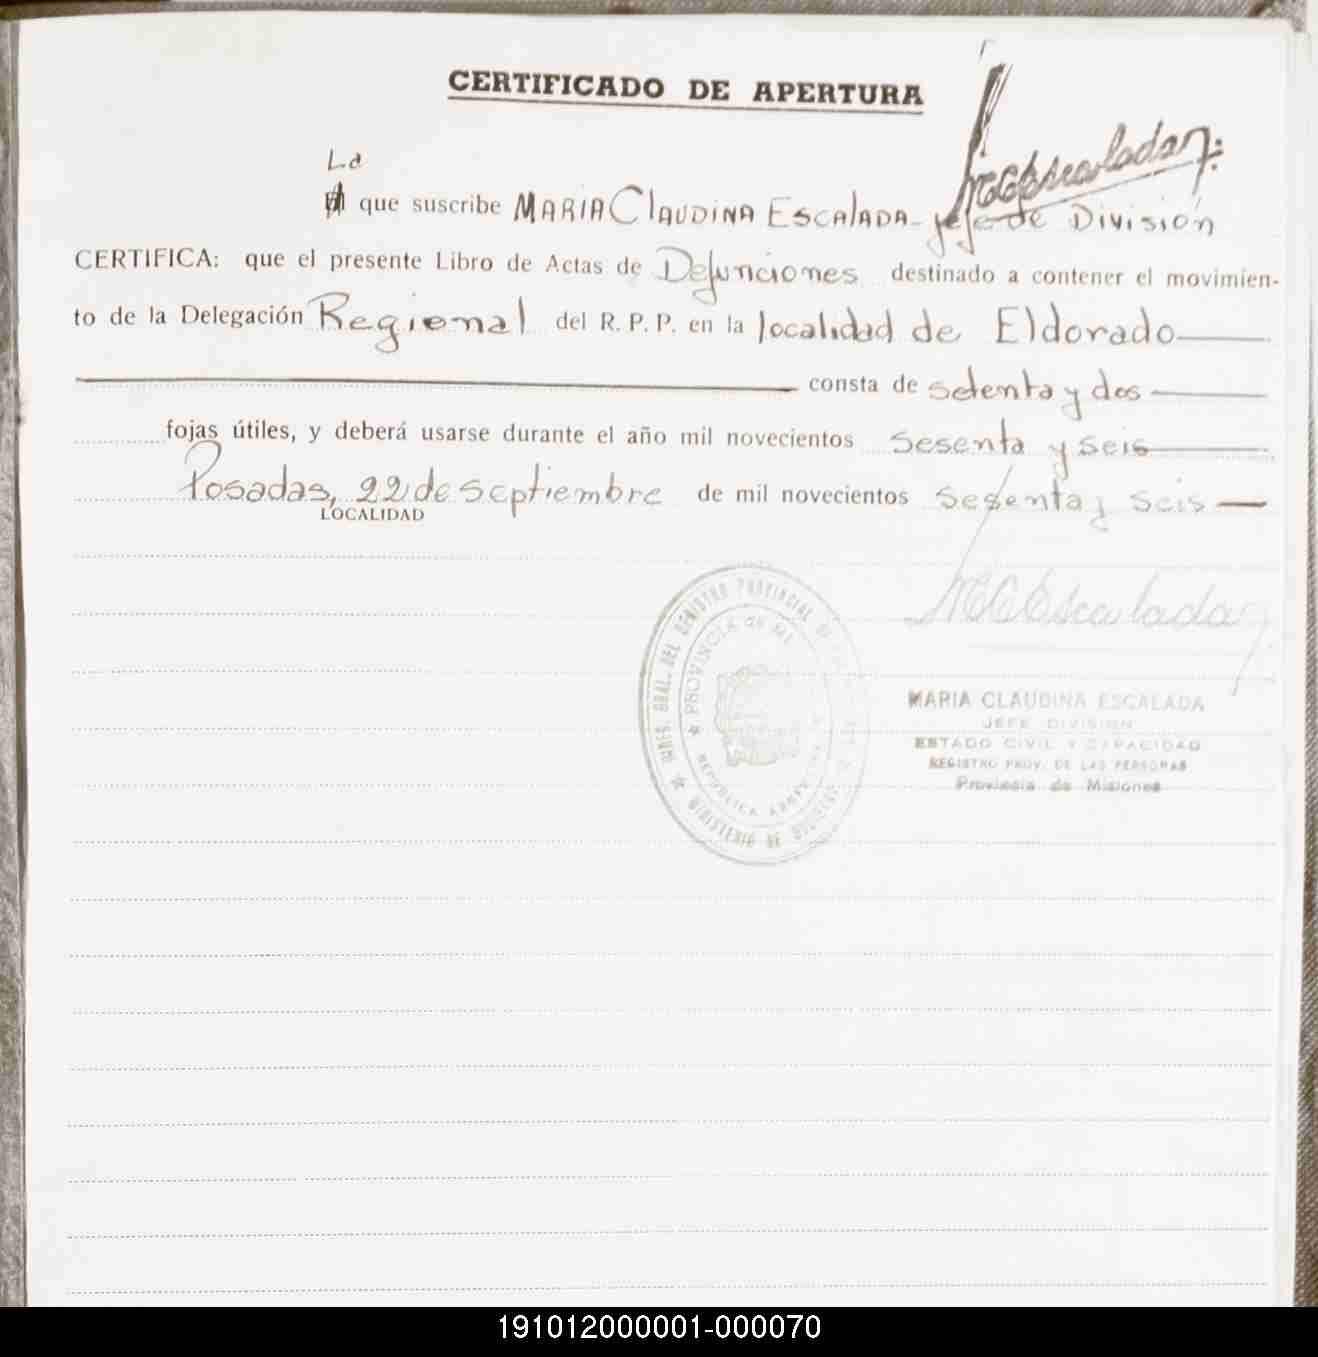 CERTIFICADO DE APERTURA
MCEscalada
La
que suscribe MARIA CLAUDINA ESCALADA - jefe de División
CERTIFICA: que el presente Libro de Actas de Defunciones destinado a contener el movimien-
to de la Delegación Regional del R. P. P. en la localidad de Eldorado
consta de setenta y dos
fojas útiles, y deberá usarse durante el año mil novecientos sesenta y seis
Posadas, 22 de septiembre de mil novecientos sesenta y seis
LOCALIDAD
MCEscalada
DIREC. GRAL. DEL REGISTRO PROVINCIAL DE
PROVINCIA de MI
REPUBLICA ARGENTINA
MINISTERIO DE GOBIERNO
MARIA CLAUDINA ESCALADA
JEFE DIVISION
ESTADO CIVIL Y CAPACIDAD
REGISTRO PROV. DE LAS PERSONAS
Provincia de Misiones
191012000001-000070